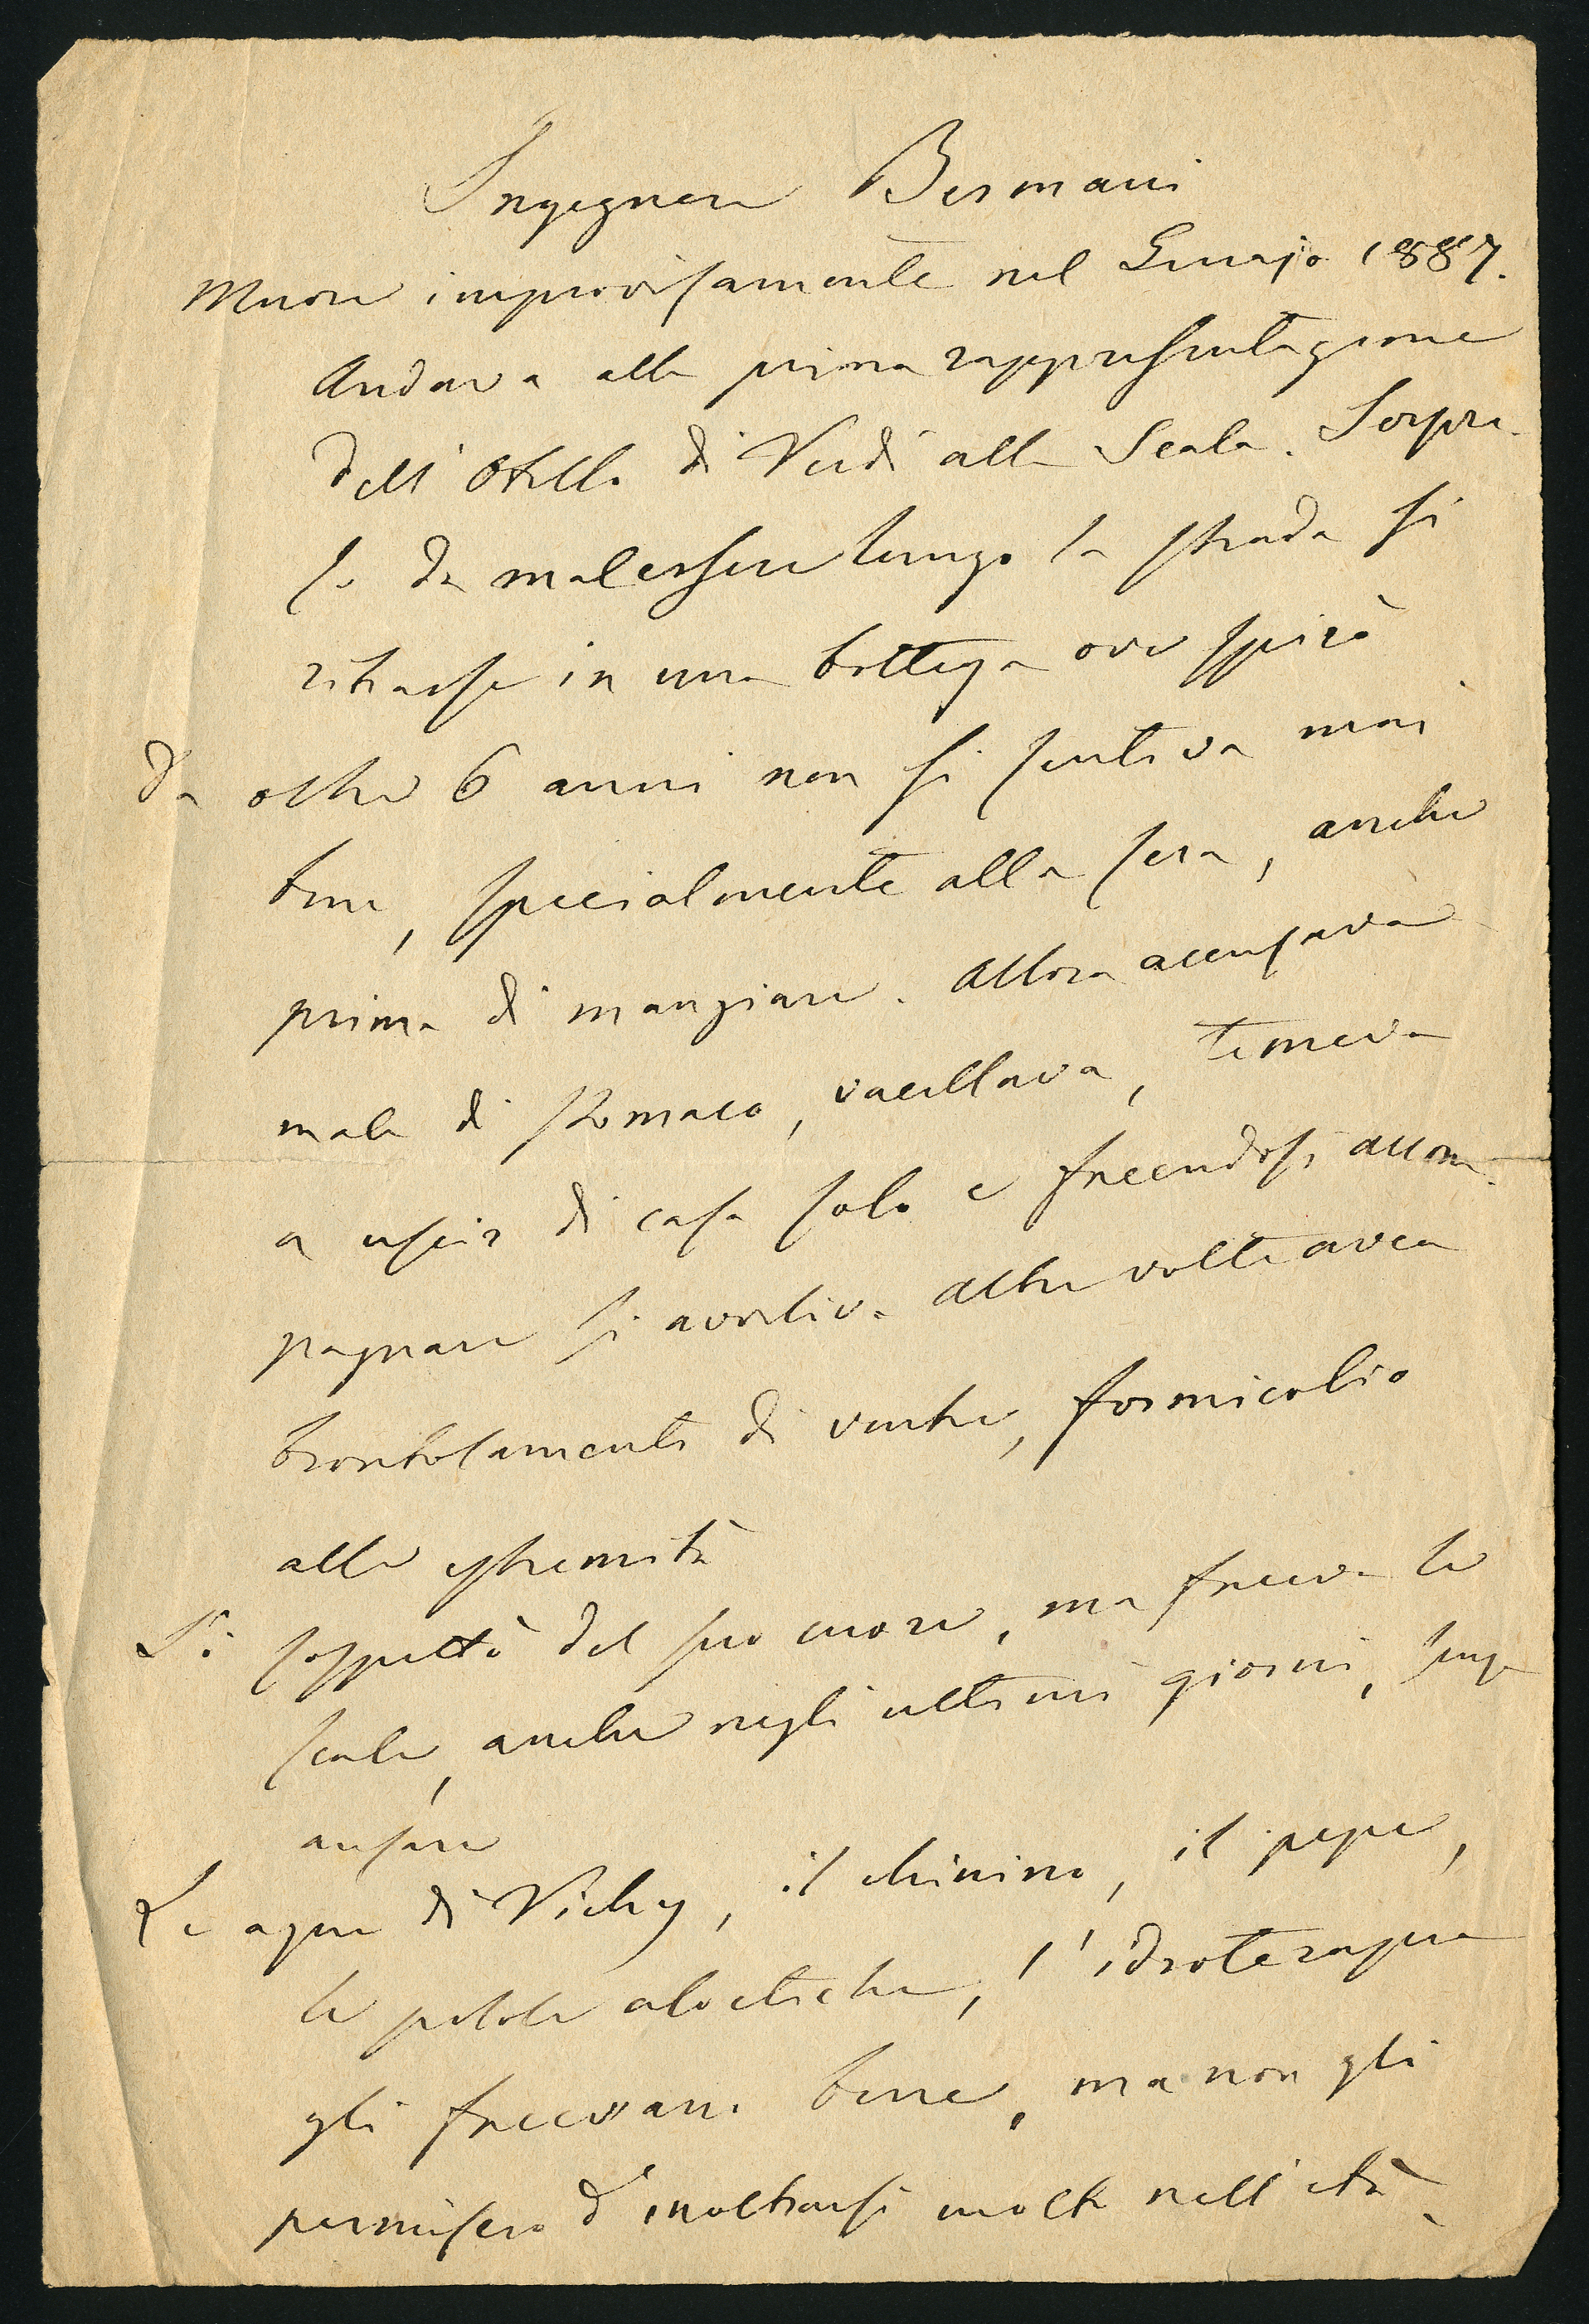 Ingegnere Bermani
Muore improvisamente nel Genajo 1887.
Andava alla prima rappresentazione
dell'Otello di Verdi alla Scala. Sorpre-
so da malessere lungo la strada si
ritrasse in una bottega ove spirò
Da oltre 6 anni non si sentiva mai
bene, specialmente alla sera, anche
prima di mangiare. Allora accusava
male di stomaco, vacillava, temeva
a uscir di casa solo e facendosi accom-
pagnare si avviliva. Altre volte avea
brontolamenti di ventre, formicolio
alle estremità
Si sospettò del suo cuore, ma faceva le
scale, anche negli ultimi giorni, senza
ansare
Le aque di Vichy, il chinino, il pepe,
le pillole aloetiche, l'idroterapia
gli facevano bene, ma non gli
permisero d'inoltrarsi molto nell'età